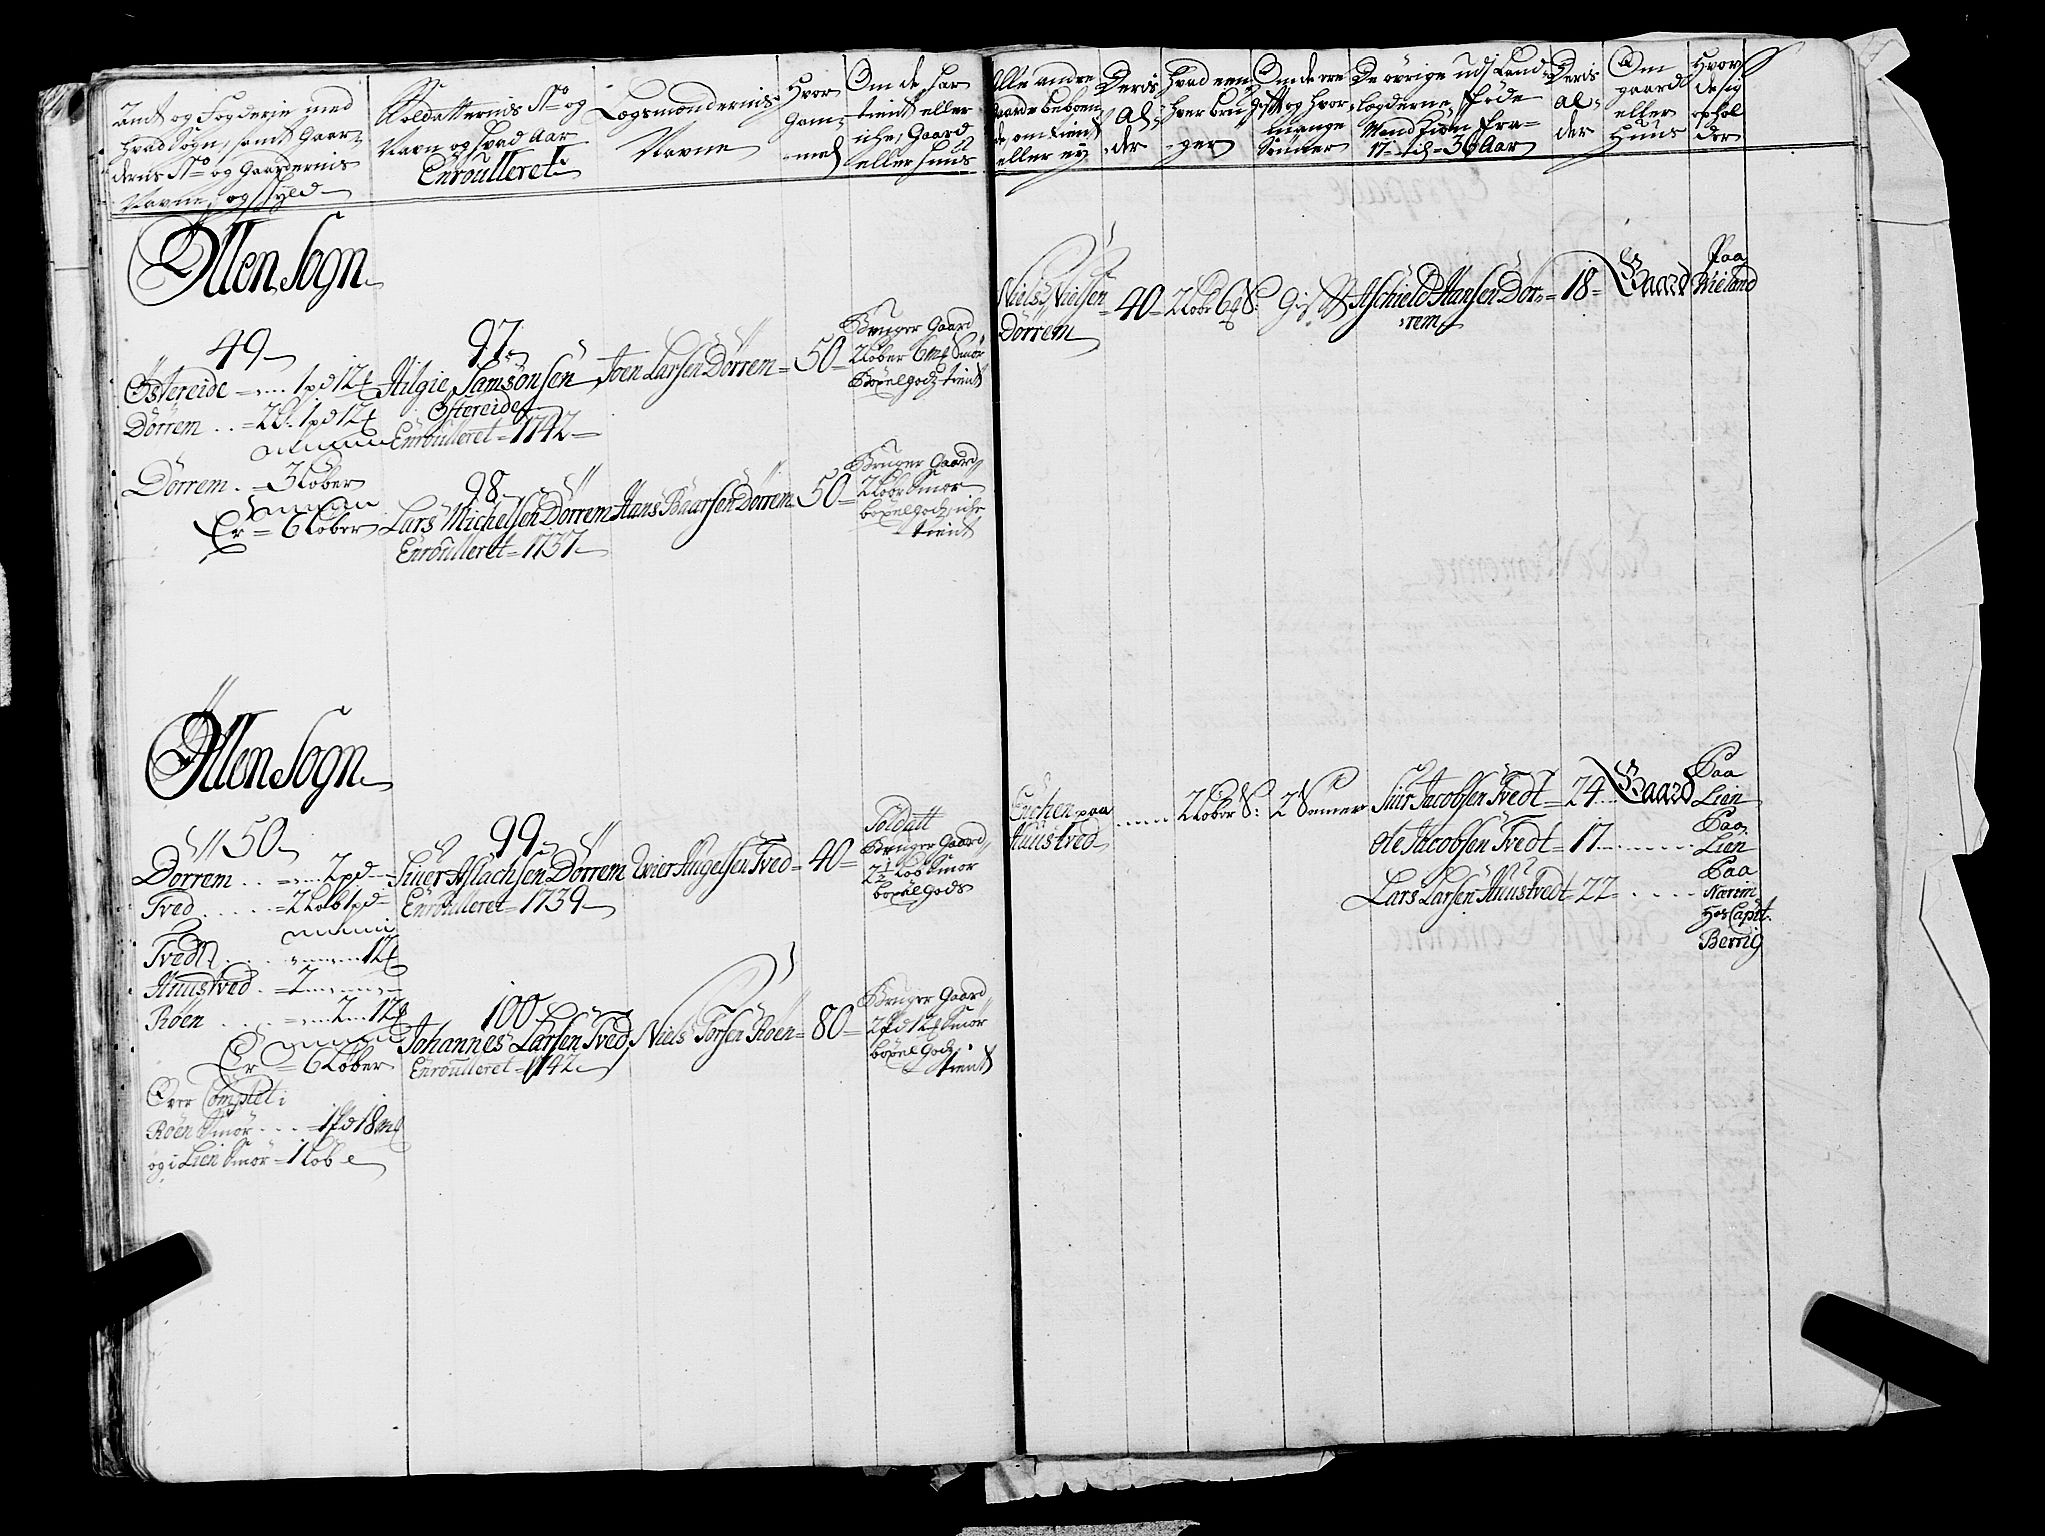 Amt og Fogderie med
hvad Sogn, samt Gaar-
dernis No og Gaardernis
Navne, og skyld
Soldatternis No og
Navn og hvad Aar
Enroulleret
Lægsmændernis
Navne
Hvor
Gam-
mel
Om de har
tient eller
iche, Gaard
eller Huus
Alle andre
Gaarde beboen-
de, om tient
eller ey
Deris
Al-
der
Hvad een
hver bru-
ger
Om de ere
Gift og hvor
mange
Sønner
De øvrige udj Land
lægderne, fødde
Mand Kiøn fra
17 til 36 Aar
Deris
Al-
der
Om
gaard
eller
Huus
Hvor
de sig
ophol
der
Øllen Sogn
49
Østereide 1pd 12
Dørrem 2 L. 1pd 12
Dørrem 3 Løber
Er 6 Løber
97
Hilgie Samsonsen
Østereide
Enroulleret 1742
Joen Larsen Dørrem 50
Bruger Gaard
2 Løber 6 m Smør
Boxelgodz tient
98
Lars Michelsen Dørrem
Enroulleret 1737
Hans Baarsen Dørrem 50
Bruger Gaard
2 Løbr Smør
boxelgodz iche
tient
Niels Nielsen
Dørrem
40
2 Løbr 6 S.
Gift
Aschield Hansen Dør-
rem
18
Gaard
Paa
Wieland
Øllen Sogn
50
Dørrem 2pd
Tved 2 Løb 1pd
Tvedt 12
Huustved 2
Røen 2 12
Er 6 Løber
Over Complet i
Røen Smør 1pd 18 m
og i Lien Smør 1 Løb
99
Siuer Aslachsen Dørrem
Enroulleret 1739
Wier Hugelsen Tved 40
Soldatt
Bruger Gaard
2 1/2 Løb Smør
boxelgods
100
Johannes Larsen Tved
Enroulleret 1742
Niels Torsen Røen 80
Bruger Gaard
2pd 12 Smør
boxelgodz
tient
Enchen paa
Huustved
2 Løber S.
2 Sønner
Siur Jacobsen Tvedt 24
Gaard
Paa
Lien
Ole Jacobsen Tvedt 17
Paa
Lien
Lars Larsen Huustvedt 22
Paa
Hos Capit.
Berrig